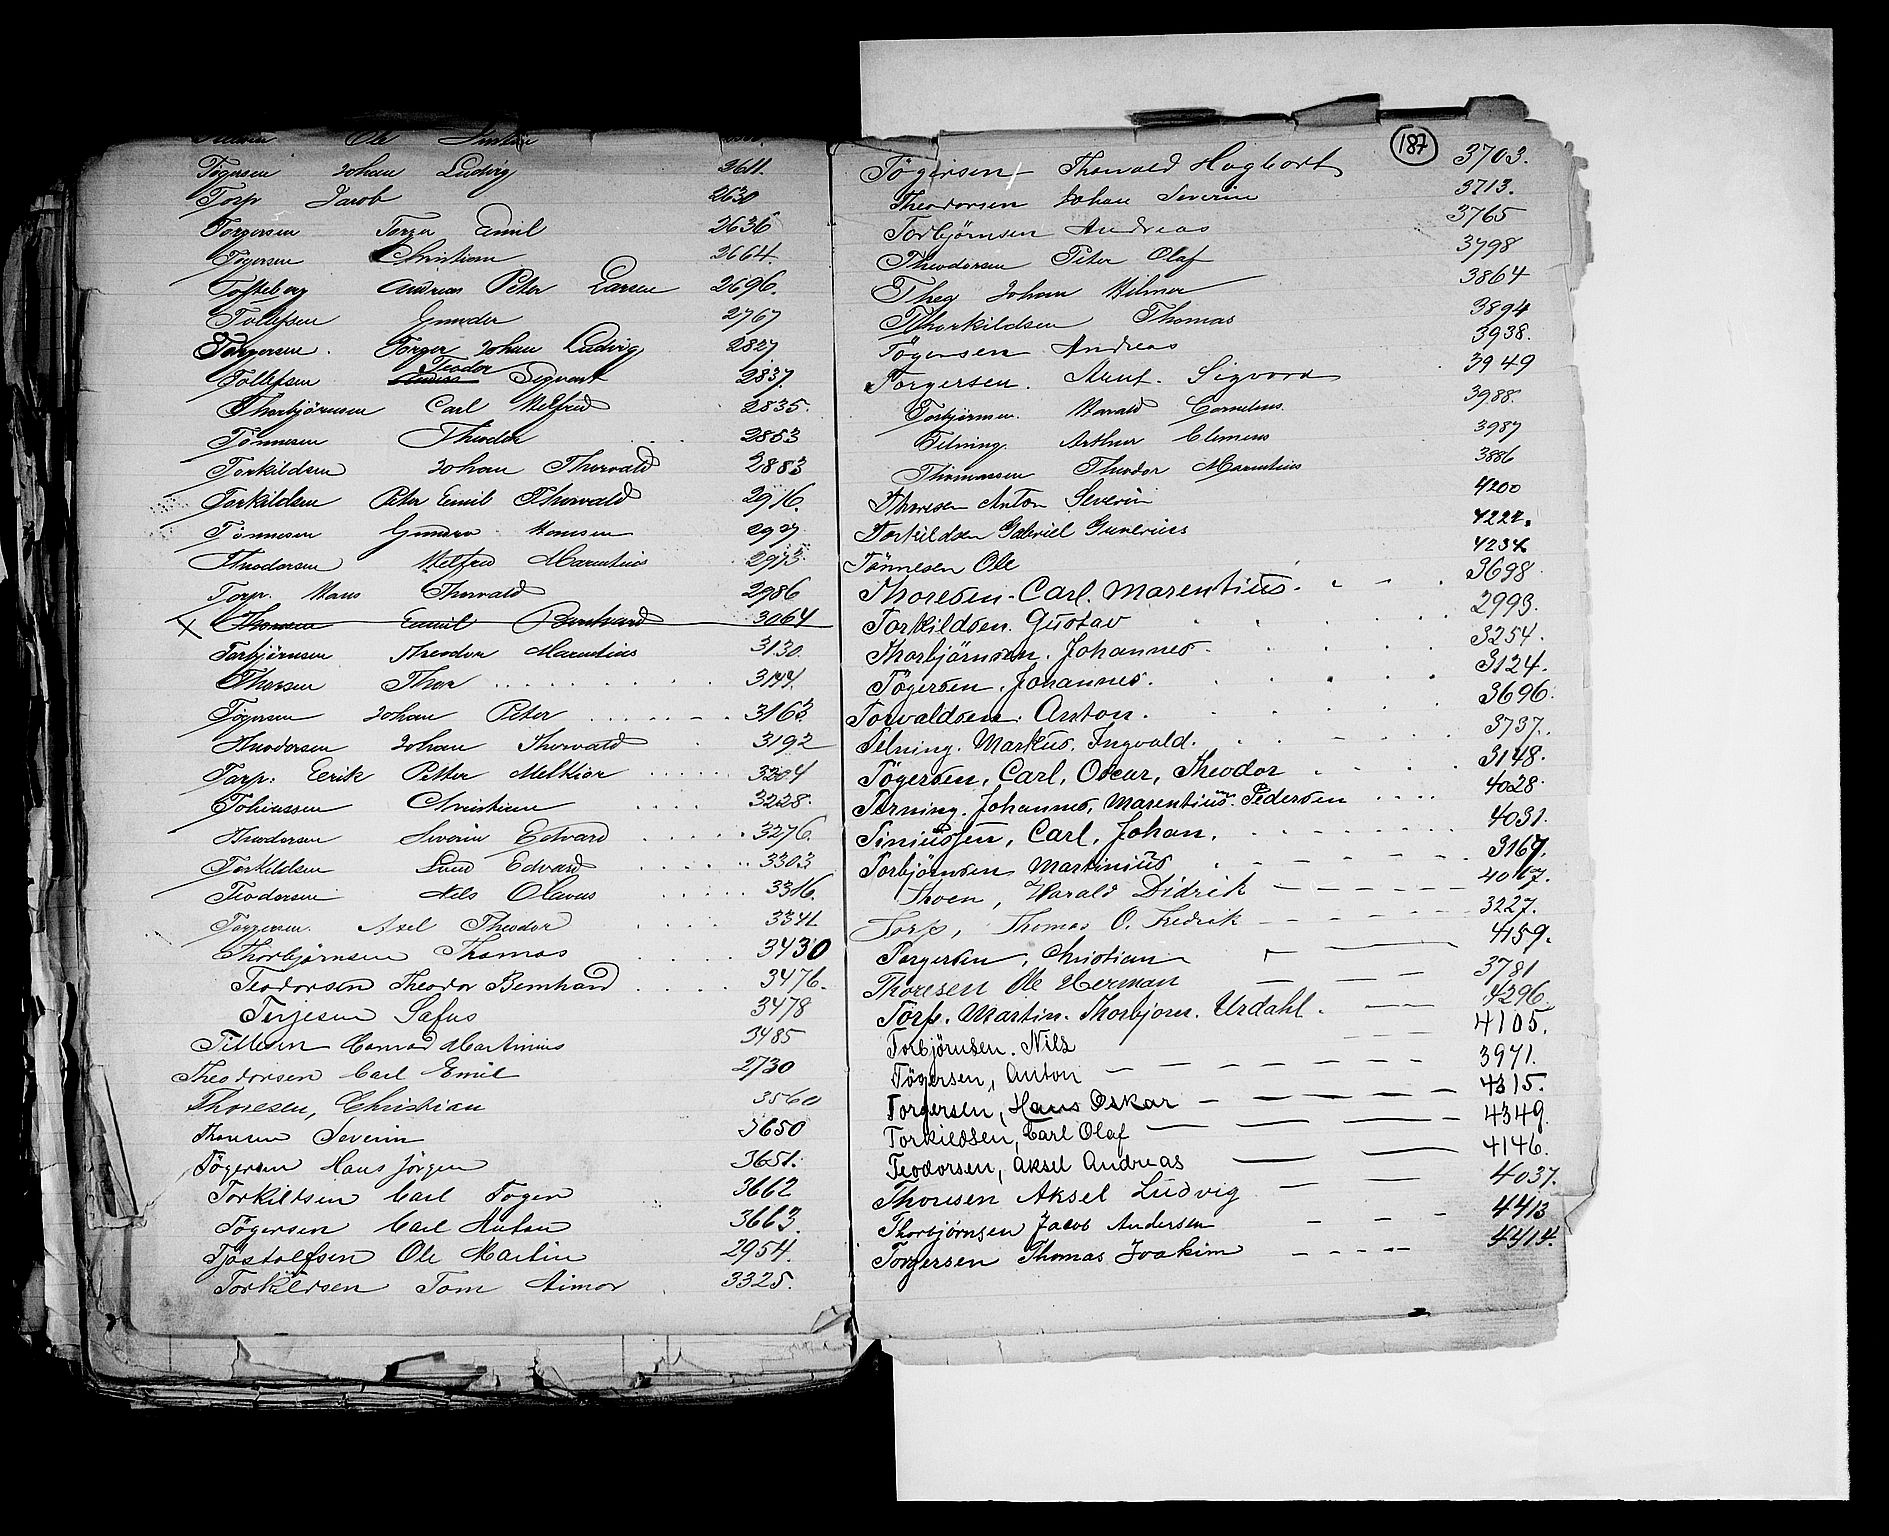 Ole
Tögersen Johan Ludvig 2611.
Torp Jacob 2630
Torgersen Torger Emil 2636
Tögersen Christian 2664.
Tofteberg Andreas Peter Larsen 2696.
Tollefsen Gunder 2767
Torgersen. Torger Johan Ludvig 2827
Tollefsen Teodor Sigvart 2837.
Thorbjörnsen Carl Welfred 2835.
Tönnesen Theodor 2853
Torkildsen Johan Thorvald 2883
Torkildsen Peter Emil Thorvald 2916.
Tönnesen Gunder Hansen 2927
Theodorsen Welfred Marentius 2973.
Torp. Hans Thorvald 2986
X Thorsen Emil Bernhard 3064
Torbjörnsen Theodor Marentius 3130
Thorsen Thor 3144.
Tögersen Johan Peter 3163
Theodorsen Johan Thorvald 3192
Torp. Eerik Petter Melkior 3204
Tobiassen Christian 3228.
Theodorsen Severin Edvard 3276.
Torkildsen Lund Edvard 3303
Teodorsen Nels Olavus 3316.
Torgersen. Axel Theodor 3341
Thorbjørnsen Thomas 3430
Teodorsen Theodor Bernhard 3476.
Terjesen Safus 3478
Tillesen Conrad Martinius 3485
Theodorsen Carl Emil 2730
Thoresen, Christian 3560
Thorsen Severin 3650
Tögersen Hans Jörgen 3651.
Torkildsen Carl Toger 3662
Tögersen Carl Anton 3663.
Tjöstolfsen Ole Martin 2954.
Torkildsen Tom Aimar 3325.
187
Tögersen Thorvald Hagbart 3703.
Theodorsen Johan Severin 3713.
Torbjørnsen Andreas 3765
Theodorsen Peter Olaf 3798
Theg Johan Hilmar 3864
Thorkildsen Thomas 3894
Tögersen Andreas 3938.
Torgersen. Arnt. Sigvard 3949
Torbjørnsen. Harald Cornelius. 3988.
Telning. Arthur Clemens 3987
Thomassen Theodor Marentius 3886
Thoresen Anton Severin 4200
Torkildsen Gabriel Gunerius 4222.
Tönnesen Ole 4234
Thoresen. Carl. Marentius. 3698.
Torkildsen. Gustav 2993.
Thorbjörnsen. Johannes. 3254.
Tögersen. Johannes. 3124.
Torvaldsen. Anton. 3696.
Telning. Markus. Ingvald. 3737.
Tögersen, Carl, Oscar, Theodor 3148.
Terning. Johannes, Marentius. Pedersen 4028.
Siniussen, Carl, Johan, 4031.
Torbjörnsen Martinius 3167.
Thoen, Harald Didrik 4017.
Torp, Thomas O. Fredrik 3227.
Torgersen, Christian 4159.
Thoresen Ole Herman 3781
Törp. Martin. Thorbjorn. Urdahl. 4296.
Torbjørnsen. Nils 4105.
Tögersen, Anton 3971.
Torgersen, Hans Oskar 4315.
Torkildsen, Carl Olaf 4349.
Teodorsen, Aksel Andreas 4146.
Thoresen Aksel Ludvig 4037.
Thorbjørnsen Jacob Andersen 4413
Torgersen Thomas Joakim 4414.